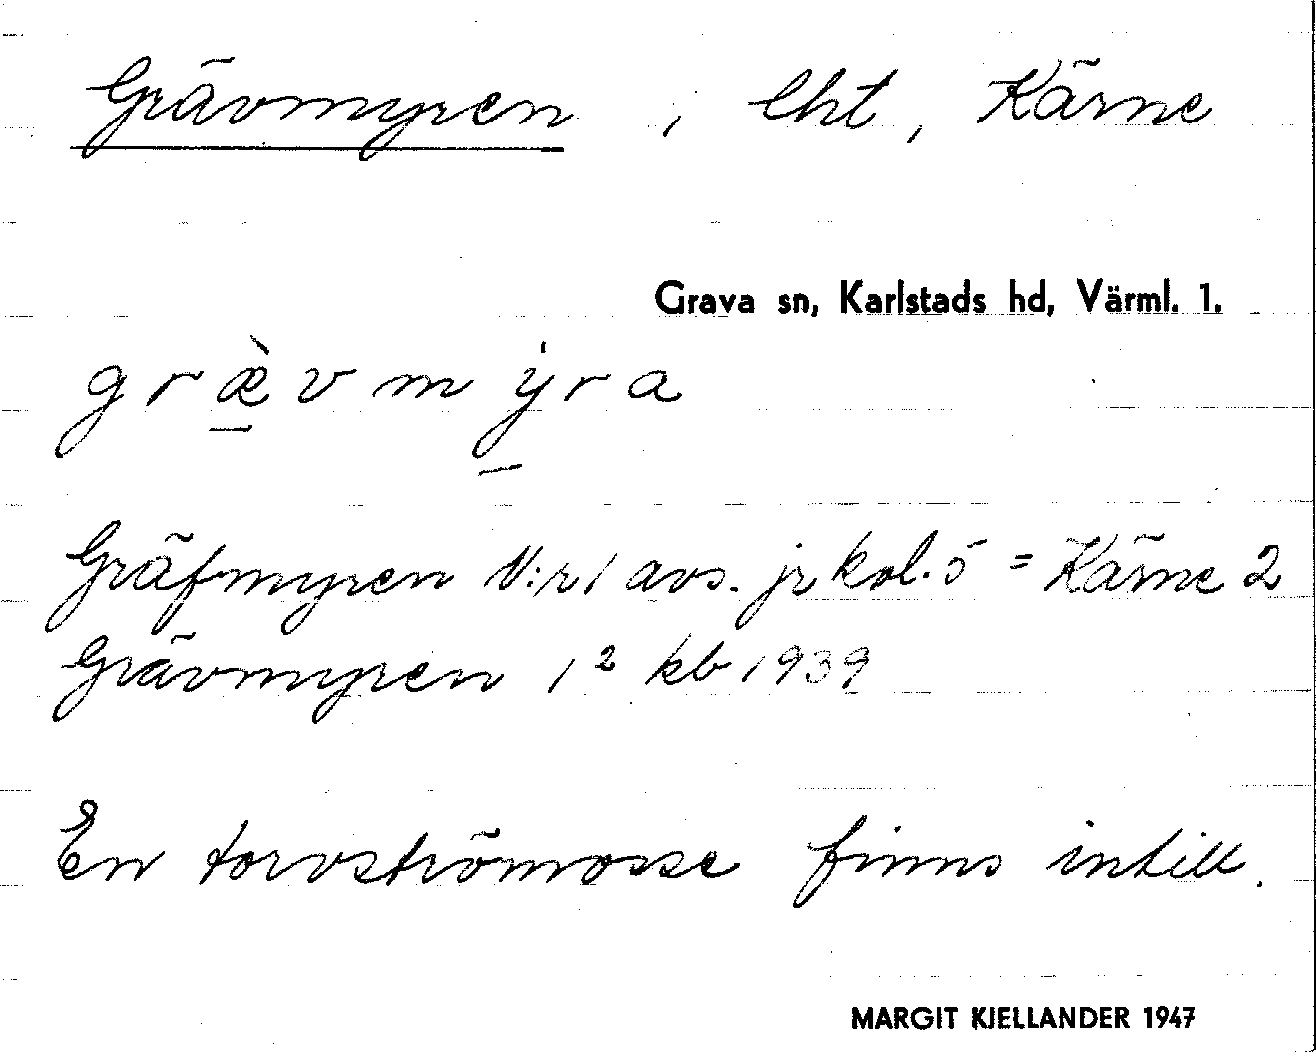 Grävmyren, lht, Kärne
Grava sn, Karlstads hd, Värml. 1.
græ̀vmy̍ra
Gräfmyren N:r 1 avs. jr kol. 5 = Kärne 2
Grävmyren 1² kb 1939
En torvströmosse finns intill.
MARGIT KJELLANDER 1947